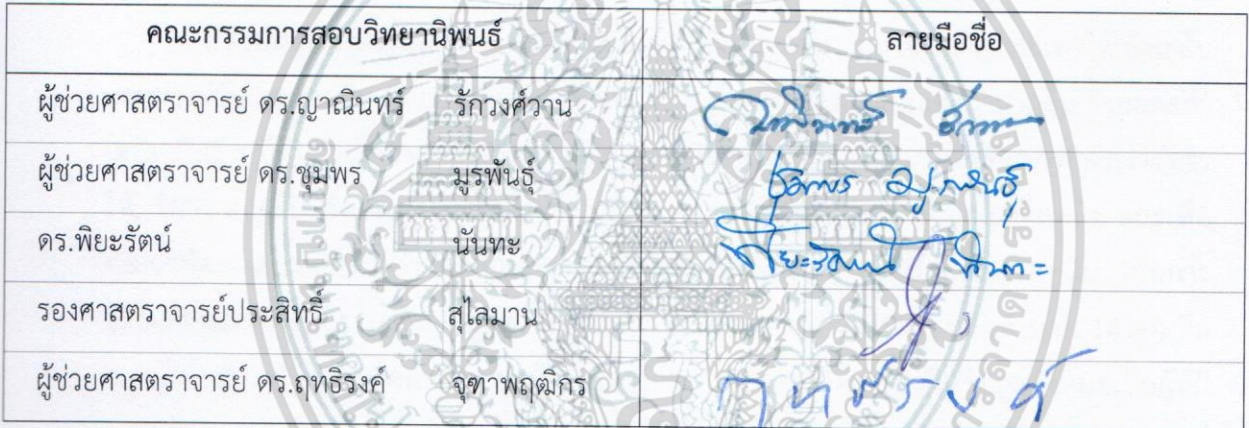 คณะกรรมการสอบวิทยานิพนธ์ ลายมือชื่อ
ผู้ช่วยศาสตราจารย์ ดร.ญาณินทร์ รักวงศ์วาน
ผู้ช่วยศาสตราจารย์ ดร.ชุมพร มูรพันธุ์ ชุมพร มูรพันธุ์
ดร.พิยะรัตน์ นันทะ พิยะรัตน์ นันทะ
รองศาสตราจารย์ประสิทธิ์ สุไลมาน
ผู้ช่วยศาสตราจารย์ ดร.ฤทธิรงค์ จุฑาพฤฒิกร ฤทธิรงค์